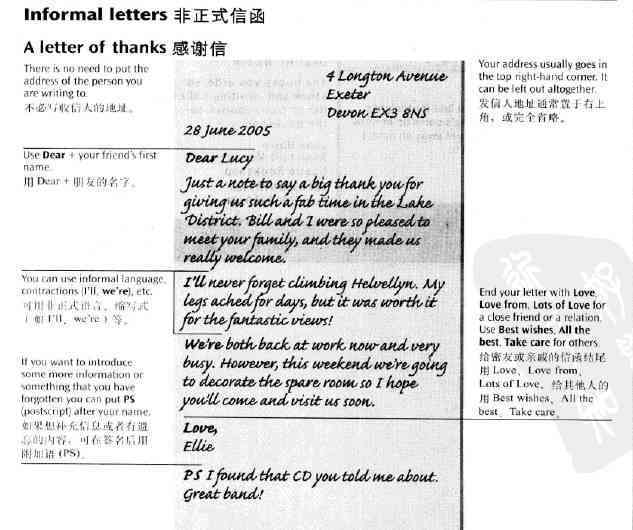 Informal letters 非正式信函
A letter of thanks 感谢信
There is no need to put the
address of the person you
are writing to.
不必写收信人的地址。
4 Longton Avenue
Exeter
Devon EX3 8NS
28 June 2005
Your address usually goes in
the top right-hand corner. It
can be left out altogether.
发信人地址通常置于右上
角，或完全省略。
Use Dear + your friend's first
name.
用 Dear + 朋友的名字。
Dear Lucy
Just a note to say a big thank you for
giving us such a fab time in the Lake
District. Bill and I were so pleased to
meet your family, and they made us
really welcome.
You can use informal language,
contractions (I'll, we're), etc.
可用非正式语言、缩写式
（如 I'll、we're）等。
I'll never forget climbing Helvellyn. My
legs ached for days, but it was worth it
for the fantastic views!
We're both back at work now and very
busy. However, this weekend we're going
to decorate the spare room so I hope
you'll come and visit us soon.
End your letter with Love,
Love from, Lots of Love for
a close friend or a relation.
Use Best wishes, All the
best, Take care for others.
给密友或亲戚的信函结尾
用 Love、Love from、
Lots of Love、给其他人的
用 Best wishes、All the
best、Take care。
If you want to introduce
some more information or
something that you have
forgotten you can put PS
(postscript) after your name.
如果想补充信息或者有遗
忘的内容，可在签名后用
附加语 (PS)。
Love,
Ellie
PS I found that CD you told me about.
Great band!